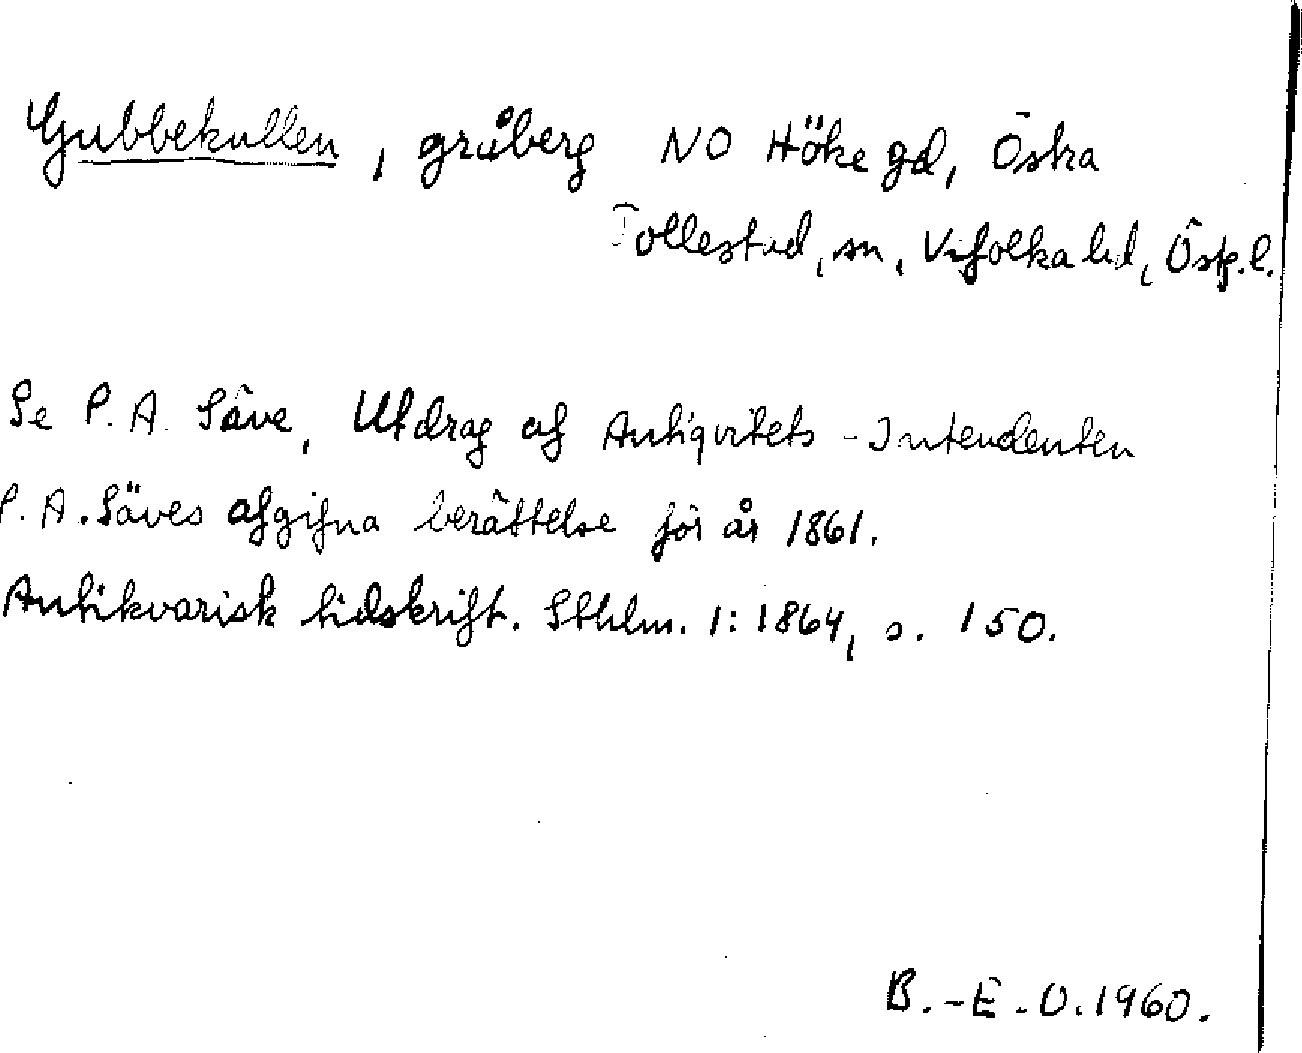 Gubbekullen, gråberg NO Höke gd, Östra
Tollestad, sn, Vifolka hd, Östg.l.
Se P. A. Säve, Utdrag af Antiqvitets-Intendenten
P. A. Säves afgifna berättelse för år 1861.
Antikvarisk tidskrift. Sthlm. 1: 1864, s. 150.
B.-E. O. 1960.